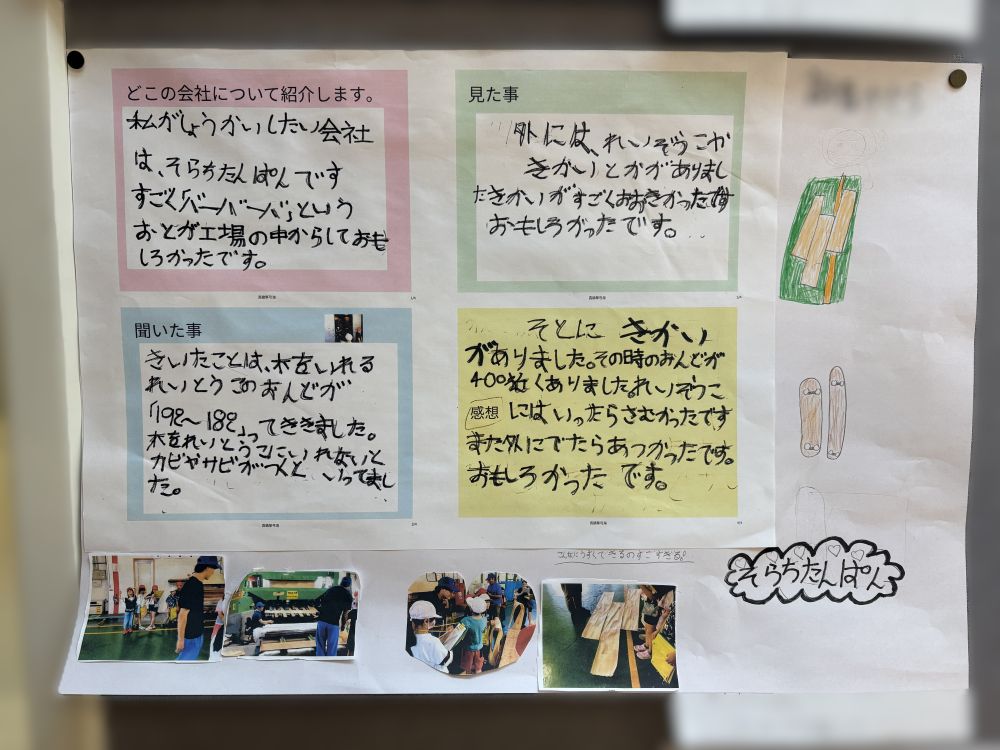 どこの会社について紹介します。
私がしょうかいしたい会社
は、そらちたんぱんです
すごく「バーバーバ」という
おとが工場の中からしておも
しろかったです。
見た事
外には、れいぞうこか
きかいとかがありまし
たきかいがすごくおおきかったです
おもしろかったです。
聞いた事
きいたことは、木をいれる
れいとうこのおんどが
「19℃~18℃」ってききました。
木をれいとうこにいれないと
カビやサビがつくと いってまし
た。
そとに きかい
がありました。その時のおんどが
40℃近くありました。れいぞうこ
感想
にはいったらさむかったです
また外にでたらあつかったです。
おもしろかった です。
こんなにうすくできるのすごすぎる!
そらちたんぱん